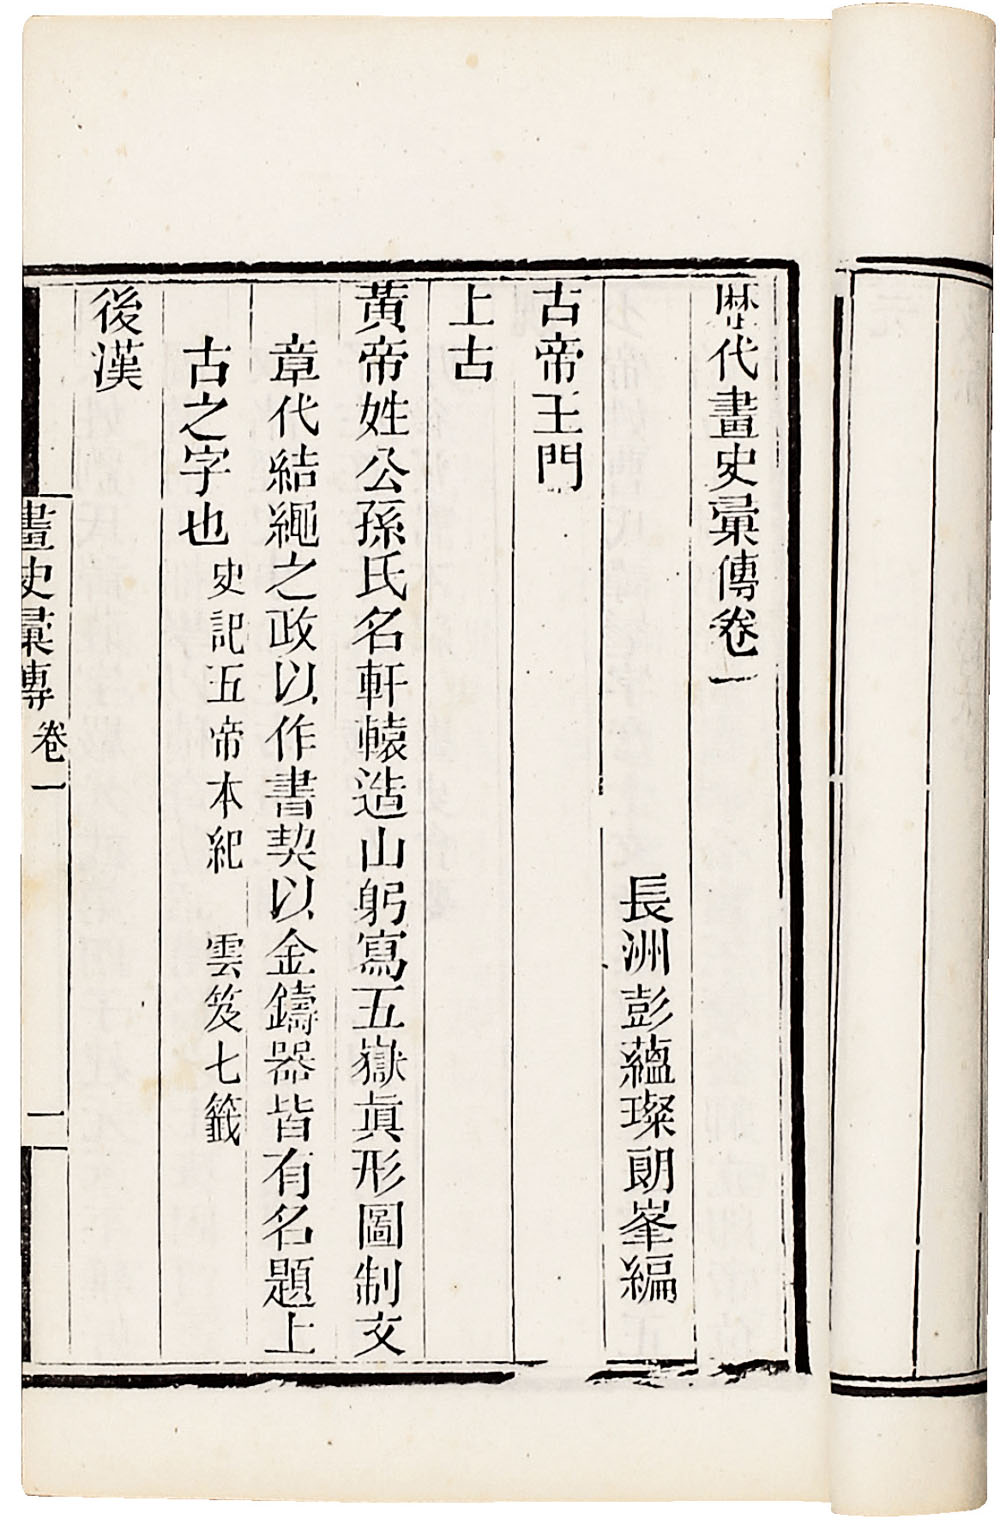 歷代畫史彙傳卷一
長洲彭蘊璨朗峯編
古帝王門
上古
黃帝姓公孫氏名軒轅造山躬寫五嶽眞形圖制文
章代結繩之政以作書契以金鑄器皆有名題上
古之字也史記五帝本紀 雲笈七籤
後漢
畫史彙傳 卷一 一